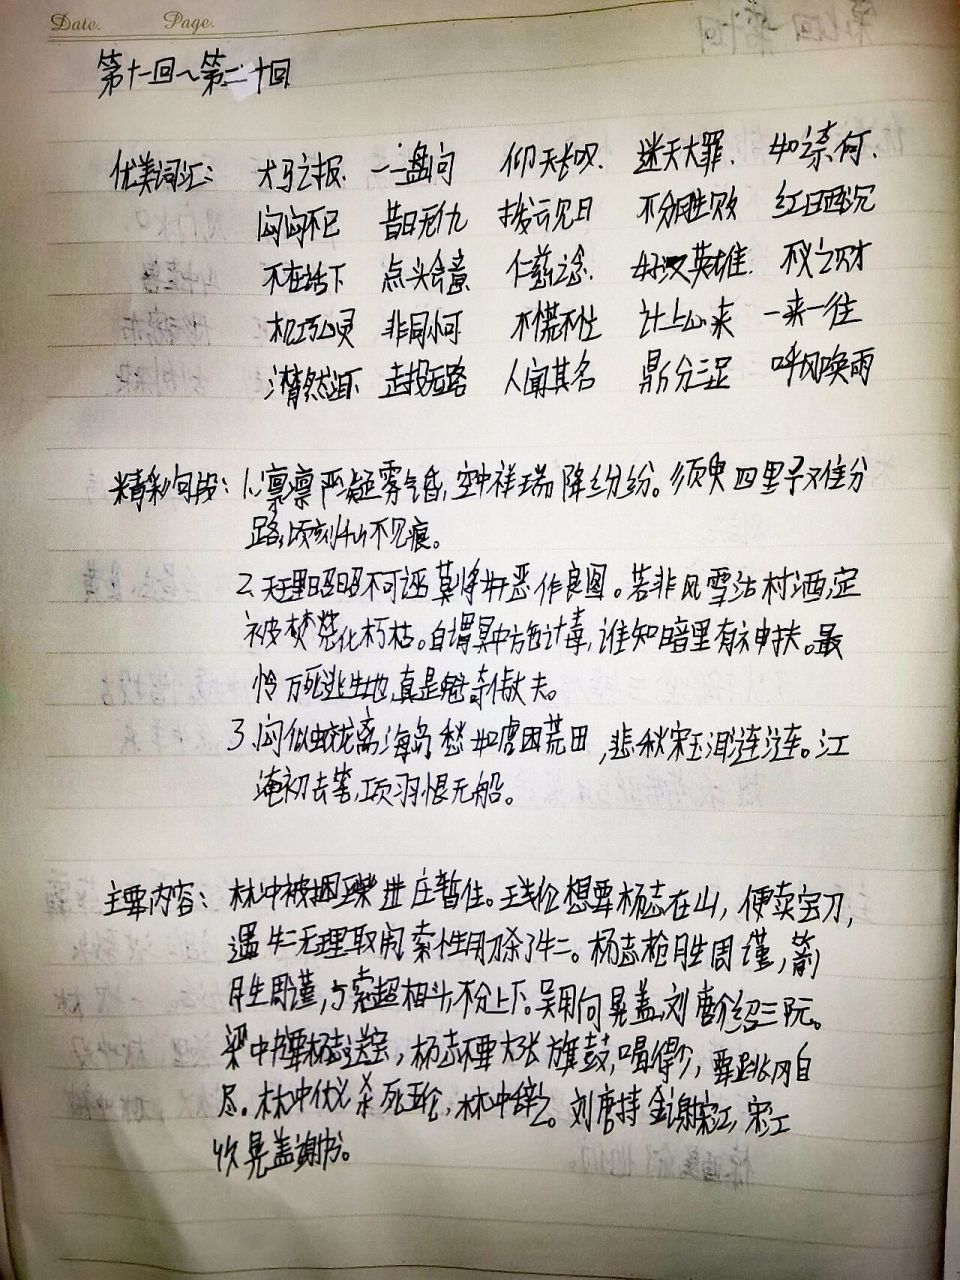 Date. Page.
第十一回~第二十回
优美词汇： 犬马之报. 一一盘问 仰天长叹. 迷天大罪. 如之奈何.
闷闷不已 昔日无仇 拨云见日 不分胜败 红日西沉
不在话下 点头会意 仁慈之念. 好汉英雄. 不义之财
机巧心灵 非同小可 不慌不忙 计上心来 一来一往
潸然泪下 走投无路 人闻其名 鼎分三足 呼风唤雨
精彩句段：1.凛凛严凝雾气昏,空中祥瑞降纷纷。须臾四野难分
路,顷刻千山不见痕。
2.天理昭昭不可诬 莫将奸恶作良图。若非风雪沽村酒,定
被焚烧化朽枯。自谓冥中施计毒,谁知暗里有神扶。最
怜万死逃生地,真是魁奇伟丈夫。
3.闷似蛟龙离海岛 愁如虎困荒田,悲秋宋玉泪涟涟。江
淹初去笔,项羽恨无船。
主要内容： 林冲被捆 进庄暂住。王伦想要杨志在山,便卖宝刀,
遇牛二无理取闹 索性用刀杀了牛二。杨志枪胜周谨,箭
胜周谨,与索超相斗不分上下。吴用向晁盖,刘唐介绍三阮。
梁中书要杨志送宝,杨志不要大张旗鼓,喝得少,要跳冈自
尽。林冲仗义杀死王伦,林中 。刘唐持金谢宋江,宋江
收晁盖谢书。